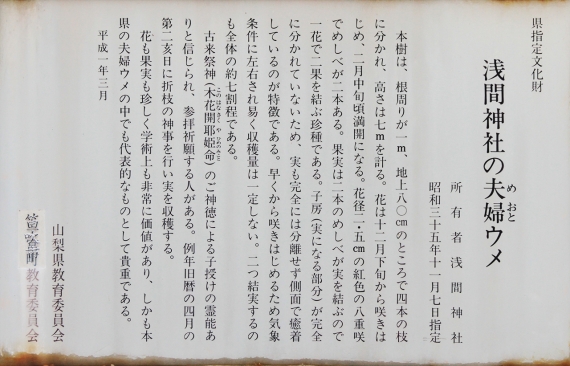 県指定文化財
浅間神社の夫婦ウメ
めおと
所有者 浅間神社
昭和三十五年十一月七日指定
本樹は、根周りが一m、地上八〇cmのところで四本の枝
に分かれ、高さは七mを計る。花は十二月下旬から咲きは
じめ、二月中旬頃満開になる。花径二・五cmの紅色の八重咲
でめしべが二本ある。果実は二本のめしべが実を結ぶので
一花で二果を結ぶ珍種である。子房(実になる部分)が完全
に分かれていないため、実も完全には分離せず側面で癒着
しているのが特徴である。早くから咲きはじめるため気象
条件に左右され易く収穫量は一定しない。二つ結実するの
も全体の約七割程である。
古来祭神(木花開耶姫命)のご神徳による子授けの霊能あ
このはなさくやひめのみこと
りと信じられ、参拝祈願する人がある。例年旧暦の四月の
第二亥日に折枝の神事を行い実を収穫する。
花も果実も珍しく学術上も非常に価値があり、しかも本
県の夫婦ウメの中でも代表的なものとして貴重である。
平成一年三月
山梨県教育委員会
教育委員会